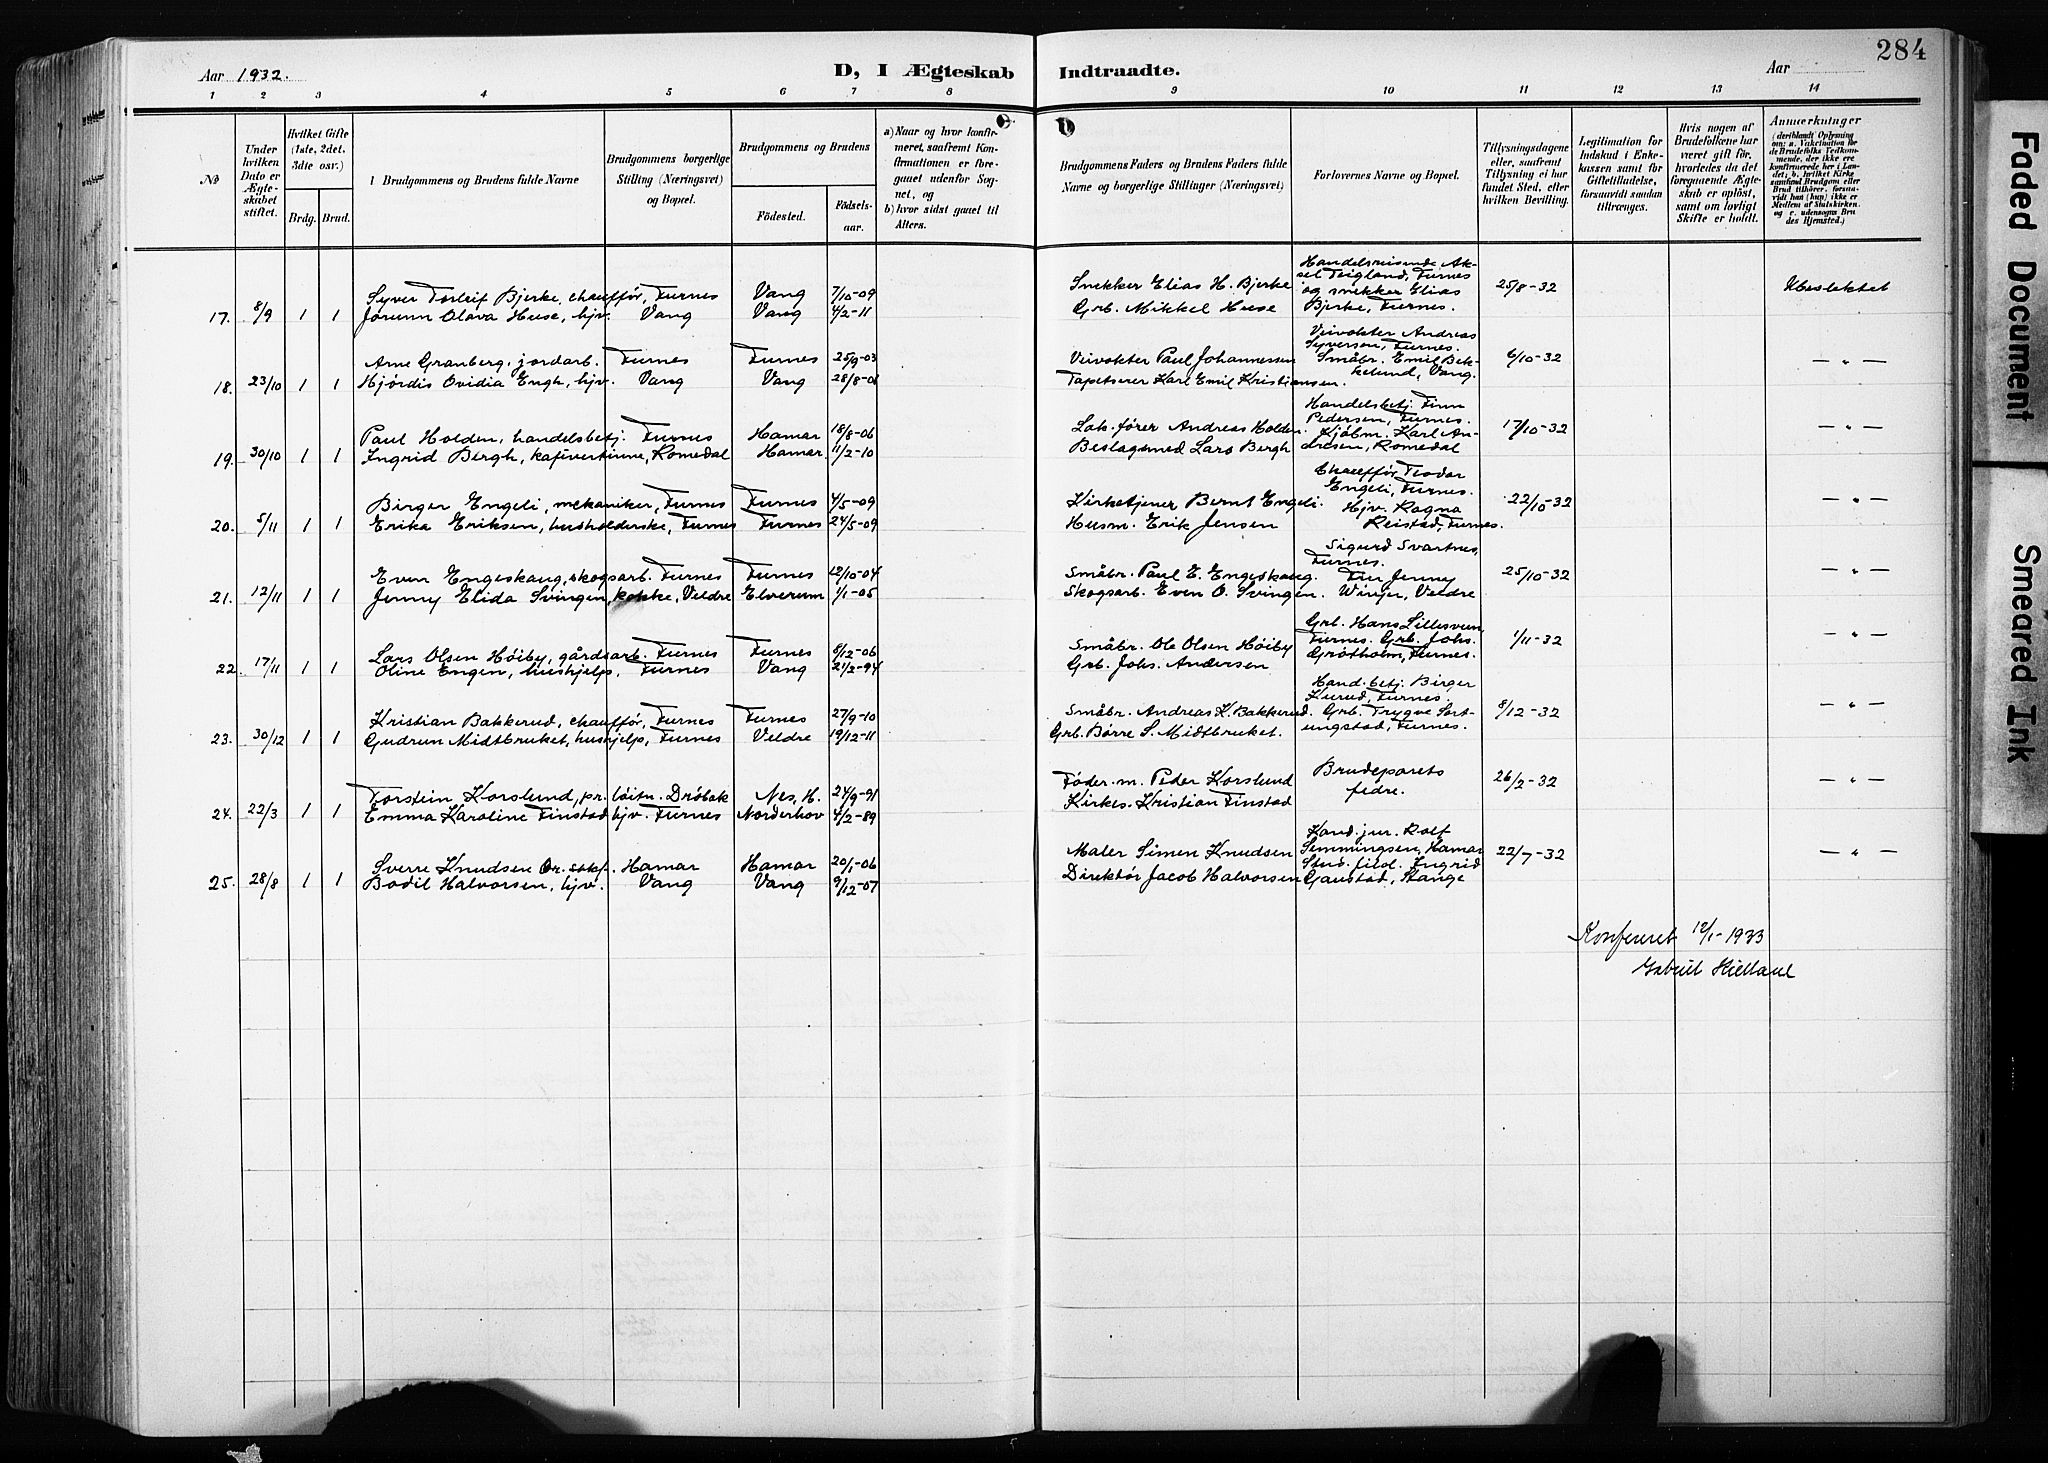 284
Aar 1932.
D, I Ægteskab Indtraadte.
Aar
1 2 3 4 5 6 7 8 9 10 11 12 13 14
No
Under hvilken Dato er Ægteskabet stiftet.
Hvilket Gifte (1ste, 2det, 3dte osv.)
Brdg. Brud.
Brudgommens og Brudens fulde Navne
Brudgommens borgerlige Stilling (Næringsvei) og Bopæl.
Brudgommens og Brudens
Födested.
Födselsaar.
a) Naar og hvor konfirmeret, saafremt Konfirmationen er foregaaet udenfor Sognet, og
b) hvor sidst gaaet til Alters.
Brudgommens Faders og Brudens Faders fulde Navne og borgerlige Stillinger (Næringsvei)
Forlovernes Navne og Bopæl.
Tillysningsdagene eller, saafremt Tillysning ei har fundet Sted, efter hvilken Bevilling.
Legitimation for Indskud i Enkekassen samt for Giftetilladelse, forsaavidt saadan tiltrænges.
Hvis nogen af Brudefolkene har været gift før, hvorledes da det foregaaende Ægteskab er opløst, samt om lovligt Skifte er holdt.
Anmærkninger
(deriblandt Oplysning om: a. Vakcination for de Brudefolks Vedkommende, der ikke ere konfirmerede her i Landet; b. hvilket Kirkesamfund Brudgom eller Brud tilhører, forsaavidt han (hun) ikke er Medlem af Statskirken, og c. udensogns Brudes Hjemsted.)
Handelsreisende Ak-
Syver Torleif Bjerke, chauffør, Furnes Vang 7/10-09 Snekker Elias H. Bjerke sel Teigland, Furnes 25/8-32 Ubeslektet
og snekker Elias
17. 8/9 1 1 Jorunn Olava Huse, hjv. Vang Vang 4/2-11 Grb. Mikkel Huse Bjerke, Furnes.
Veivokter Andreas
Arne Granberg, jordarb. Furnes Furnes 25/9-03 Veivokter Paul Johannessen Syversen, Furnes. 6/10-32 — " —
Småbr. Emil Bek-
18. 23/10 1 1 Hjørdis Ovidia Engh, hjv. Vang Vang 28/8-08 Tapetserer Karl Emil Kristiansen. kelund, Vang.
Handelsbetj. Finn
Paul Holden, handelsbetj. Furnes Hamar 18/8-06 Lok.fører Andreas Holden. Pedersen, Furnes. 17/10-32 — " —
Kjøbm. Karl An-
19. 30/10 1 1 Ingrid Bergh, kafévertinne, Romedal Hamar 11/2-10 Beslagsmed Lars Bergh dresen, Romedal
Chauffør Teodor
Birger Engeli, mekaniker, Furnes Furnes 4/5-09 Kirketjener Bernt Engeli. Engeli, Furnes. 22/10-32 — " —
Hjv. Ragna
20. 5/11 1 1 Erika Eriksen, husholderske, Furnes Furnes 24/5-09 Husm. Erik Jensen Reistad, Furnes.
Sigurd Svartnes,
Even Engeskaug, skogsarb. Furnes Furnes 12/10-04 Småbr. Paul E. Engeskaug. Furnes. 25/10-32 — " —
Fru Jenny
21. 12/11 1 1 Jenny Elida Svingen, kokke, Veldre Elverum 1/1-05 Skogsarb. Even O. Svingen. Winjer, Veldre
Grb. Hans Lillesveen,
Lars Olsen Høiby, gårdsarb. Furnes Furnes 8/12-06 Småbr. Ole Olsen Høiby Furnes. Grb. Johs. 1/11-32 — " —
22. 17/11 1 1 Oline Engen, hushjelp, Furnes Vang 21/2-94 Grb. Johs. Andersen Grøtholm, Furnes.
Hand.betj. Birger
Kurud, Furnes.
Kristian Bakkerud, chauffør, Furnes Furnes 27/9-10 Småbr. Andreas K. Bakkerud. Grb. Trygve Sort- 8/12-32 — " —
23. 30/12 1 1 Gudrun Midtbruket, hushjelp, Furnes Veldre 19/12-11 Grb. Børre S. Midtbruket. ungstad, Furnes.
Torstein Korslund, pr. løitn. Drøbak Nes, H. 24/9-91 Føder.m. Peder Korslund Brudeparets 26/2-32 — " —
24. 22/3 1 1 Emma Karoline Finstad hjv. Furnes Norderhov 4/2-89 Kirkes. Kristian Finstad fedre.
Kand. jur. Rolf
Sverre Knudsen Or. sakf. Hamar Hamar 20/1-06 Maler Simen Knudsen Semmingsen, Hamar 22/7-32 — " —
Stud. filol. Ingrid
25. 28/8 1 1 Bodil Halvorsen, hjv. Vang Vang 9/12-07 Direktør Jacob Halvorsen Gaustad, Stange
Konfereret 12/1-1933
Gabriel Kielland
Faded Document
Smeared Ink